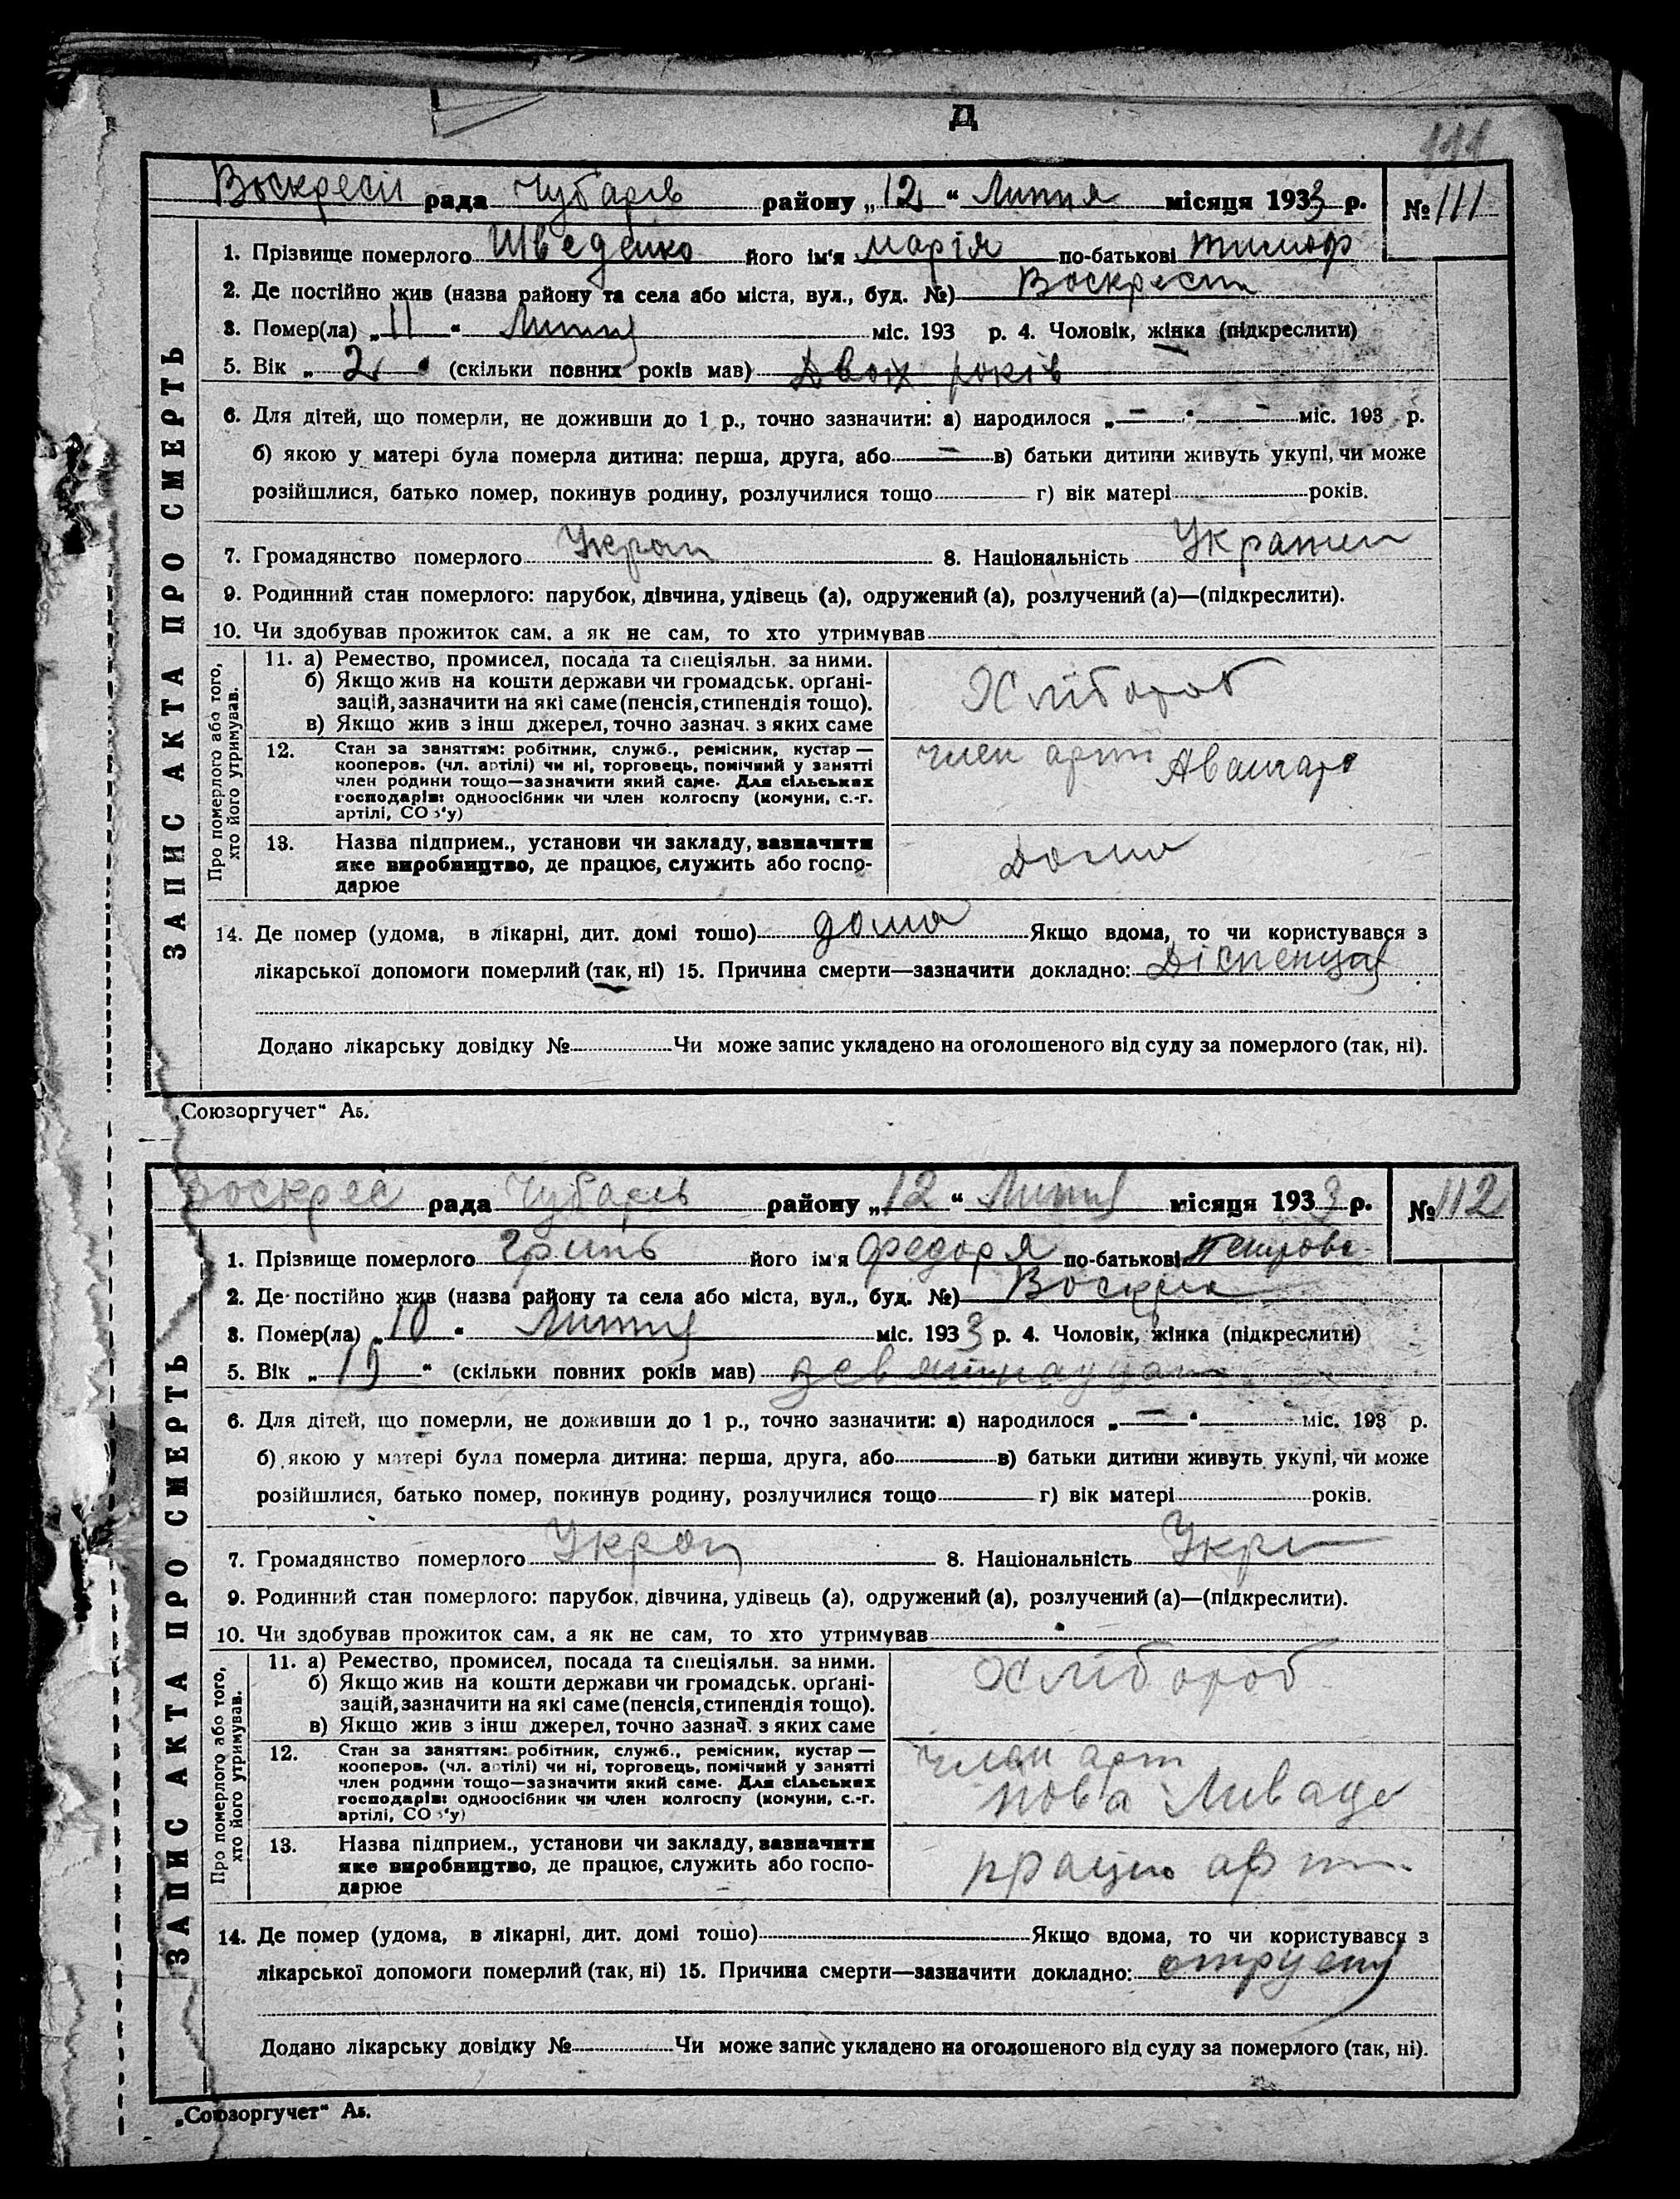 Д
111
Воскресін рада Чубарів району „12“ Липня місяця 1933 р. № 111
1. Прізвище померлого Шведенко його ім'я Марія по-батькові Тимоф
2. Де постійно жив (назва району та села або міста, вул., буд. №) Воскресен
3. Помер(ла) „11“ Липня міс. 193 р. 4. Чоловік, жінка (підкреслити)
5. Вік „2“ (скільки повних років мав) Двох років
6. Для дітей, що померли, не доживши до 1 р., точно зазначити: а) народилося „—“ — міс. 193 р.
б) якою у матері була померла дитина: перша, друга, або — в) батьки дитини живуть укупі, чи може
розійшлися, батько помер, покинув родину, розлучилися тощо г) вік матері років.
7. Громадянство померлого Украп 8. Національність Украпнеп
9. Родинний стан померлого: парубок, дівчина, удівець (а), одружений (а), розлучений (а)—(підкреслити).
10. Чи здобував прожиток сам, а як не сам, то хто утримував
11. а) Ремество, промисел, посада та спеціяльн. за ними.
б) Якщо жив на кошти держави чи громадськ. організацій, зазначити на які саме (пенсія, стипендія тощо).
в) Якщо жив з інш джерел, точно зазнач. з яких саме
Хлібороб
12. Стан за заняттям: робітник, служб., ремісник, кустар —
кооперов. (чл. артілі) чи ні, торговець, помічний у занятті
член родини тощо—зазначити який саме. Для сільських
господарів: одноосібник чи член колгоспу (комуни, с.-г.
артілі, СОЗ'у)
член арт Авангард
13. Назва підприєм., установи чи закладу, зазначити
яке виробництво, де працює, служить або господарює
Дома
14. Де помер (удома, в лікарні, дит. домі тощо) дома Якщо вдома, то чи користувався з
лікарської допомоги померлий (так, ні) 15. Причина смерти—зазначити докладно: Діспенция
Додано лікарську довідку № Чи може запис укладено на оголошеного від суду за померлого (так, ні).
ЗАПИС АКТА ПРО СМЕРТЬ
Про померлого або того,
хто його утримував.
„Союзоргучет“ А5.
Воскрес рада Чубарів району „12“ Липня місяця 1933 р. № 112
1. Прізвище померлого Гринь його ім'я Федоря по-батькові Петрове
2. Де постійно жив (назва району та села або міста, вул., буд. №) Воскре
3. Помер(ла) „10“ Липня міс. 1933 р. 4. Чоловік, жінка (підкреслити)
5. Вік „19“ (скільки повних років мав) девятнацат
6. Для дітей, що померли, не доживши до 1 р., точно зазначити: а) народилося „—“ міс. 193 р.
б) якою у матері була померла дитина: перша, друга, або в) батьки дитини живуть укупі, чи може
розійшлися, батько помер, покинув родину, розлучилися тощо г) вік матері років.
7. Громадянство померлого Украп 8. Національність Укр
9. Родинний стан померлого: парубок, дівчина, удівець (а), одружений (а), розлучений (а)—(підкреслити).
10. Чи здобував прожиток сам, а як не сам, то хто утримував
11. а) Ремество, промисел, посада та спеціяльн. за ними.
б) Якщо жив на кошти держави чи громадськ. організацій, зазначити на які саме (пенсія, стипендія тощо).
в) Якщо жив з інш джерел, точно зазнач. з яких саме
Хлібороб
12. Стан за заняттям: робітник, служб., ремісник, кустар —
кооперов. (чл. артілі) чи ні, торговець, помічний у занятті
член родини тощо—зазначити який саме. Для сільських
господарів: одноосібник чи член колгоспу (комуни, с.-г.
артілі, СОЗ'у)
член арт
Нова
13. Назва підприєм., установи чи закладу, зазначити
яке виробництво, де працює, служить або господарює
працю арт
14. Де помер (удома, в лікарні, дит. домі тощо) Якщо вдома, то чи користувався з
лікарської допомоги померлий (так, ні) 15. Причина смерти—зазначити докладно: отруєня
Додано лікарську довідку № Чи може запис укладено на оголошеного від суду за померлого (так, ні).
ЗАПИС АКТА ПРО СМЕРТЬ
Про померлого або того,
хто його утримував.
„Союзоргучет“ А5.